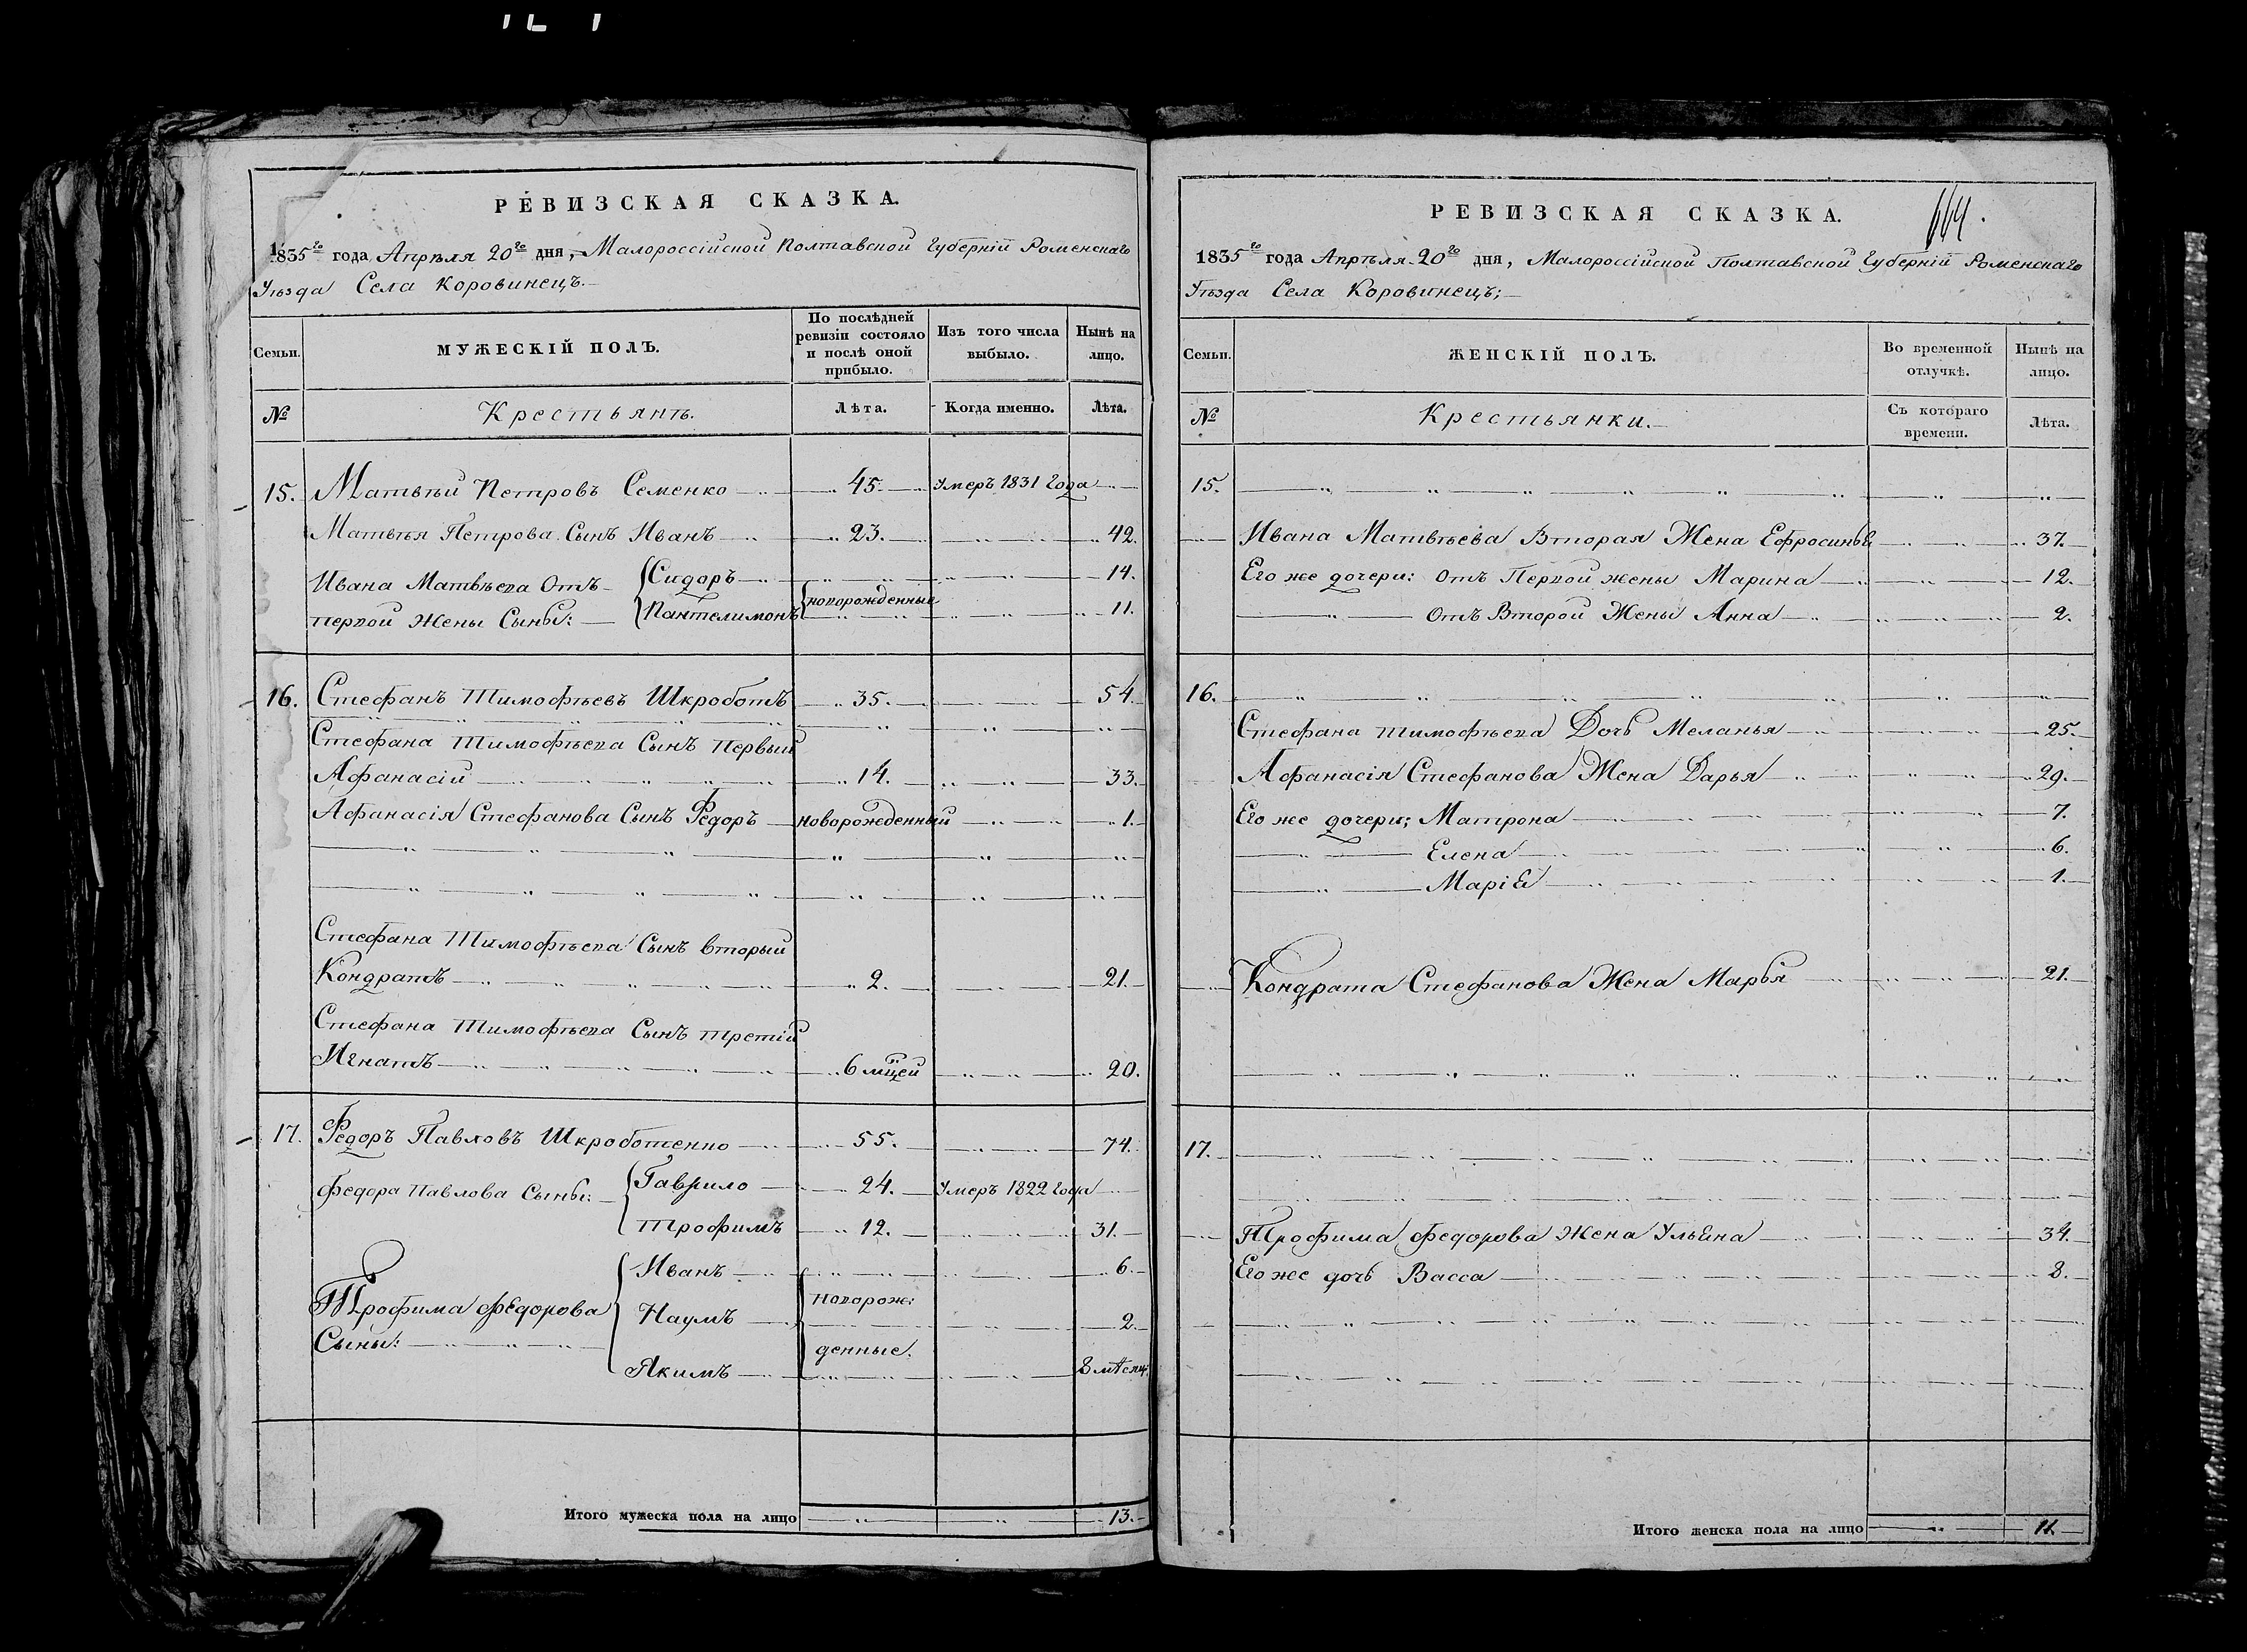 РЕВИЗСКАЯ СКАЗКА.
1835го года Апрѣля 20го дня, Малороссійской Полтавской Губерніи Роменскаго
Уѣзда Села Коровинецъ.
Семьи.
МУЖЕСКІЙ ПОЛЪ.
По послѣдней ревизіи состояло и послѣ оной прибыло.
Изъ того числа выбыло.
Нынѣ на лицо.
№
Крестьянъ.
Лѣта.
Когда именно.
Лѣта.
15. Матвѣй Петровъ Семенко 45. Умеръ 1831 года
Матвѣя Петрова Сынъ Иванъ 23. 42.
Ивана Матвѣева Отъ Сидоръ 14.
новорожденные
первой Жены Сыны: Пантелимонъ 11.
16. Стефанъ Тимофѣевъ Шкроботъ 35. 54
Стефана Тимофѣева Сынъ первый
Афанасій 14. 33.
Афанасія Стефанова Сынъ Федоръ новорожденный 1.
Стефана Тимофѣева Сынъ вторый
Кондратъ 2. 21.
Стефана Тимофѣева Сынъ третій
Игнатъ 6 мцей 20.
17. Федоръ Павловъ Шкроботенко 55. 74.
Федора Павлова Сыны: Гаврило 24. Умеръ 1822 года
Трофимъ 12. 31.
Иванъ 6.
новорож:
Трофима Федорова Наумъ 2.
Сыны: денные.
Якимъ 8 мѣсяц.
Итого мужеска пола на лицо 13.
РЕВИЗСКАЯ СКАЗКА.
664.
1835го года Апрѣля 20го дня, Малороссійской Полтавской Губерніи Роменскаго
Уѣзда Села Коровинецъ;
Семьи.
ЖЕНСКІЙ ПОЛЪ.
Во временной отлучкѣ.
Нынѣ на лицо.
№
Крестьянки.
Съ котораго времени.
Лѣта.
15.
Ивана Матвѣева Вторая Жена Ефросинья 37.
Его же дочери: Отъ Первой жены Марина 12.
Отъ Второй Жены Анна 2.
16.
Стефана Тимофѣева Дочь Меланья 25.
Афанасія Стефанова Жена Дарья 29.
Его же дочери; Матрона 7.
Елена 6.
Марія 1.
Кондрата Стефанова Жена Марья 21.
17.
Трофима Федорова Жена Ульяна 34.
Его же дочь Васса 8.
Итого женска пола на лицо 11.